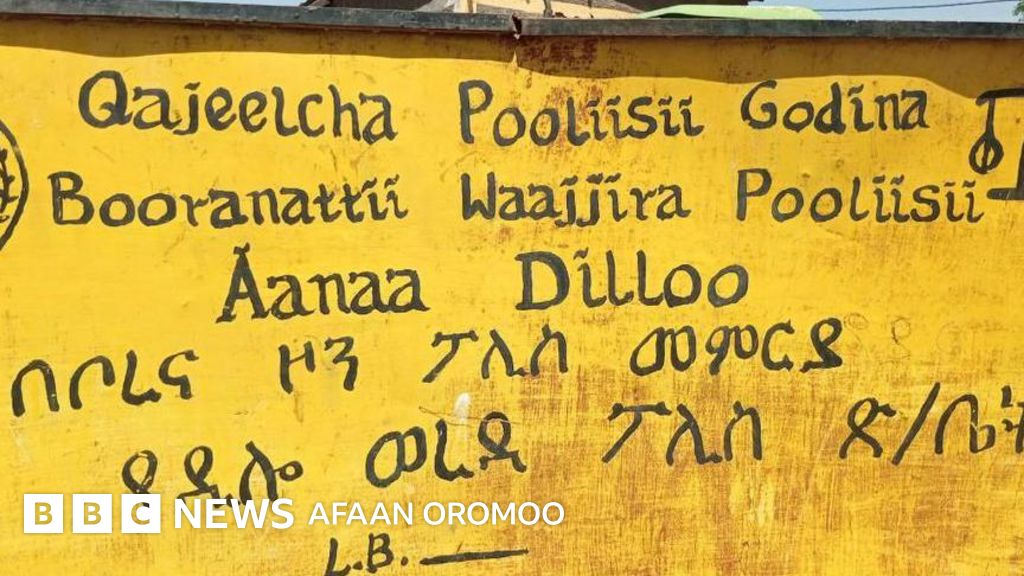 Qajeelcha Pooliisii Godina
Booranattii Waajjira Pooliisii
Aanaa Dilloo
በቦረና ዞን ፖሊስ መምርያ
የዲሎ ወረዳ ፖሊስ ጽ/ቤት
BBC NEWS AFAAN OROMOO
L.B.